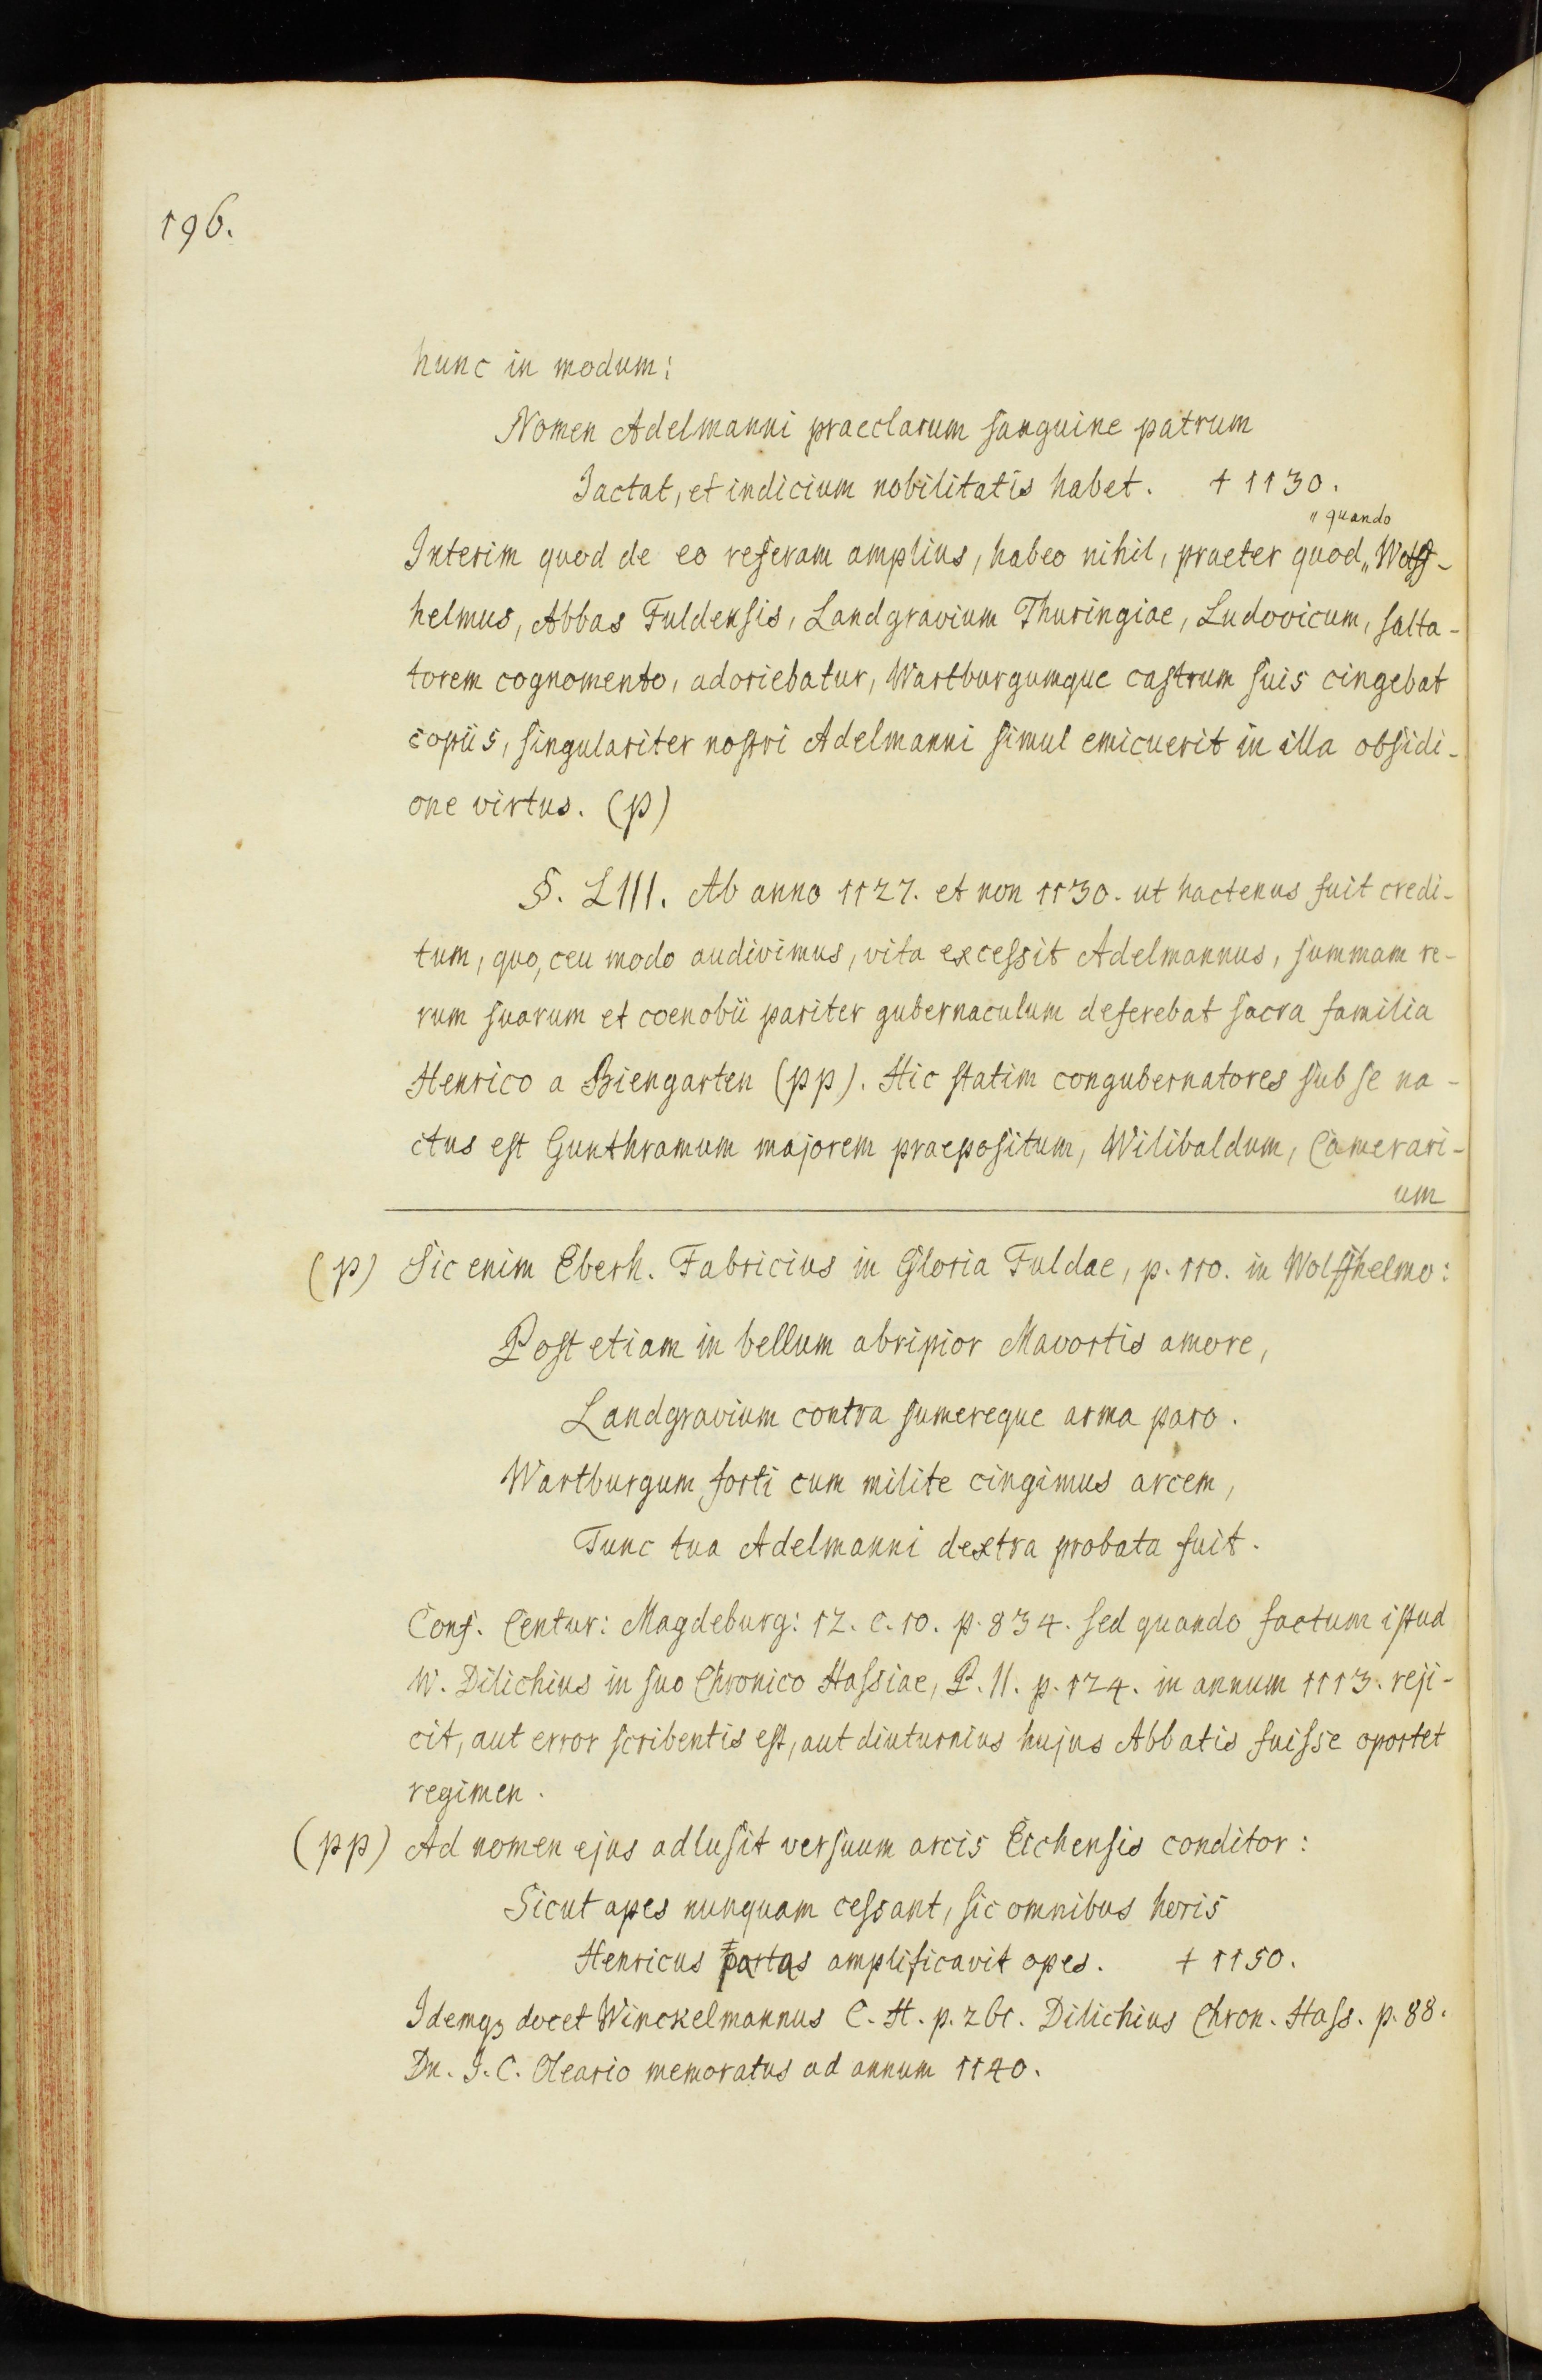 196.
hunc in modum:
Nomen Adelmanni praeclarum sanguine patrum
Jactat, et indicium nobilitatis habet. † 1130.
" quando
Interim quod de eo referam amplius, habeo nihil, praeter quod „ Wolff-
helmus, Abbas Fuldensis, Landgravium Thuringiae, Ludovicum, salta-
torem cognomento, adoriebatur, Wartburgumque castrum suis cingebat
copiis, singulariter nostri Adelmanni simul emicuerit in illa obsidi-
one virtus. (p)
§. LIII. Ab anno 1127. et non 1130. ut hactenus fuit credi-
tum, quo, ceu modo audivimus, vita excessit Adelmannus, summam re-
rum suarum et coenobii pariter gubernaculum deferebat sacra familia
Henrico a Biengarten (pp). Hic statim congubernatores sub se na-
ctus est Gunthramum majorem praepositum, Wilibaldum, Camerari-
um
(p) Sic enim Eberh. Fabricius in Gloria Fuldae, p. 110. in Wolffhelmo:
Post etiam in bellum abripior Mavortis amore,
Landgravium contra sumereque arma paro.
Wartburgum forti cum milite cingimus arcem,
Tunc tua Adelmanni dextra probata fuit.
Conf. Centur: Magdeburg: 12. c. 10. p. 834. sed quando factum istud
W. Dilichius in suo Chronico Hassiae, P. II. p. 124. in annum 1113. reji-
cit, aut error scribentis est, aut diuturnius hujus Abbatis fuisse oportet
regimen.
(pp) Ad nomen ejus adlusit versuum arcis Eichensis conditor:
Sicut apes nunquam cessant, sic omnibus horis
Henricus partas amplificavit opes. † 1150.
Idemqꝫ docet Winckelmannus C. H. p. 261. Dilichius Chron. Hass. p. 88.
Dn. J. C. Oleario memoratus ad annum 1140.